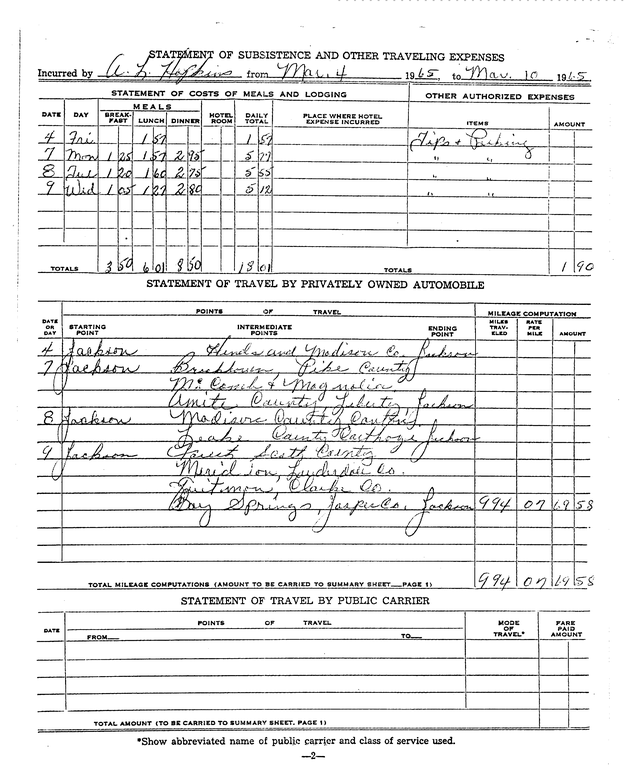 STATEMENT OF SUBSISTENCE AND OTHER TRAVELING EXPENSES
Incurred by A. L. Hopkins from Mar. 4 1965, to Mar. 10 1965
STATEMENT OF COSTS OF MEALS AND LODGING OTHER AUTHORIZED EXPENSES
DATE DAY MEALS BREAK-FAST LUNCH DINNER HOTEL ROOM DAILY TOTAL PLACE WHERE HOTEL EXPENSE INCURRED ITEMS AMOUNT
4 Fri. 1 57 1 57 Tips & Parking
7 Mon 1 25 1 57 2 95 5 77 " "
8 Tue 1 20 1 60 2 75 5 55 " "
9 Wed 1 05 1 27 2 80 5 12 " "
TOTALS 3 50 6 01 8 50 18 01 TOTALS 1 90
STATEMENT OF TRAVEL BY PRIVATELY OWNED AUTOMOBILE
POINTS OF TRAVEL MILEAGE COMPUTATION
DATE OR DAY STARTING POINT INTERMEDIATE POINTS ENDING POINT MILES TRAV-ELED RATE PER MILE AMOUNT
4 Jackson Hinds and Madison Co. Jackson
7 Jackson Brookhaven, Pike County
McComb & Magnolia
Amite County Liberty, Jackson
8 Jackson Madison County Canton,
Leake County Carthage Jackson
9 Jackson Forest Scott County
Meridian, Lauderdale Co.
Quitman, Clarke Co.
Bay Springs, Jasper Co. Jackson 994 07 69 58
TOTAL MILEAGE COMPUTATIONS (AMOUNT TO BE CARRIED TO SUMMARY SHEET PAGE 1) 994 07 69 58
STATEMENT OF TRAVEL BY PUBLIC CARRIER
DATE POINTS OF TRAVEL MODE OF TRAVEL* FARE PAID AMOUNT
FROM TO
TOTAL AMOUNT (TO BE CARRIED TO SUMMARY SHEET, PAGE 1)
*Show abbreviated name of public carrier and class of service used.
—2—